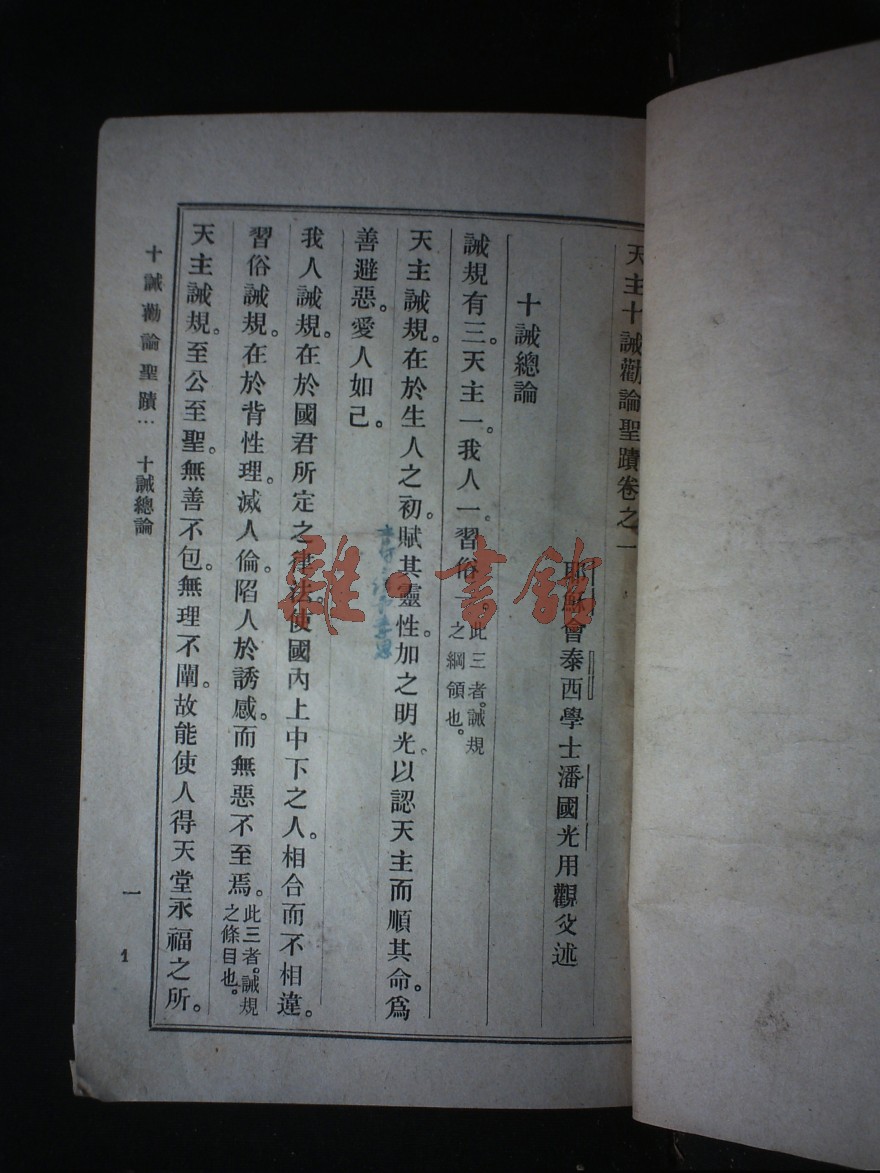 天主十誡勸論聖蹟卷之一
耶穌會泰西學士潘國光用觀父述
十誡總論
誡規有三。天主一。我人一。習俗一。此三者。誡規之綱領也。
天主誡規。在於生人之初。賦其靈性。加之明光。以認天主而順其命。爲
善避惡。愛人如己。
我人誡規。在於國君所定之律法。使國內上中下之人。相合而不相違。
習俗誡規。在於背性理。滅人倫。陷人於誘感。而無惡不至焉。此三者。誡規之條目也。
天主誡規。至公至聖。無善不包。無理不闡。故能使人得天堂永福之所。
十誡勸論聖蹟⋯ 十誡總論
一
1
雜·書館